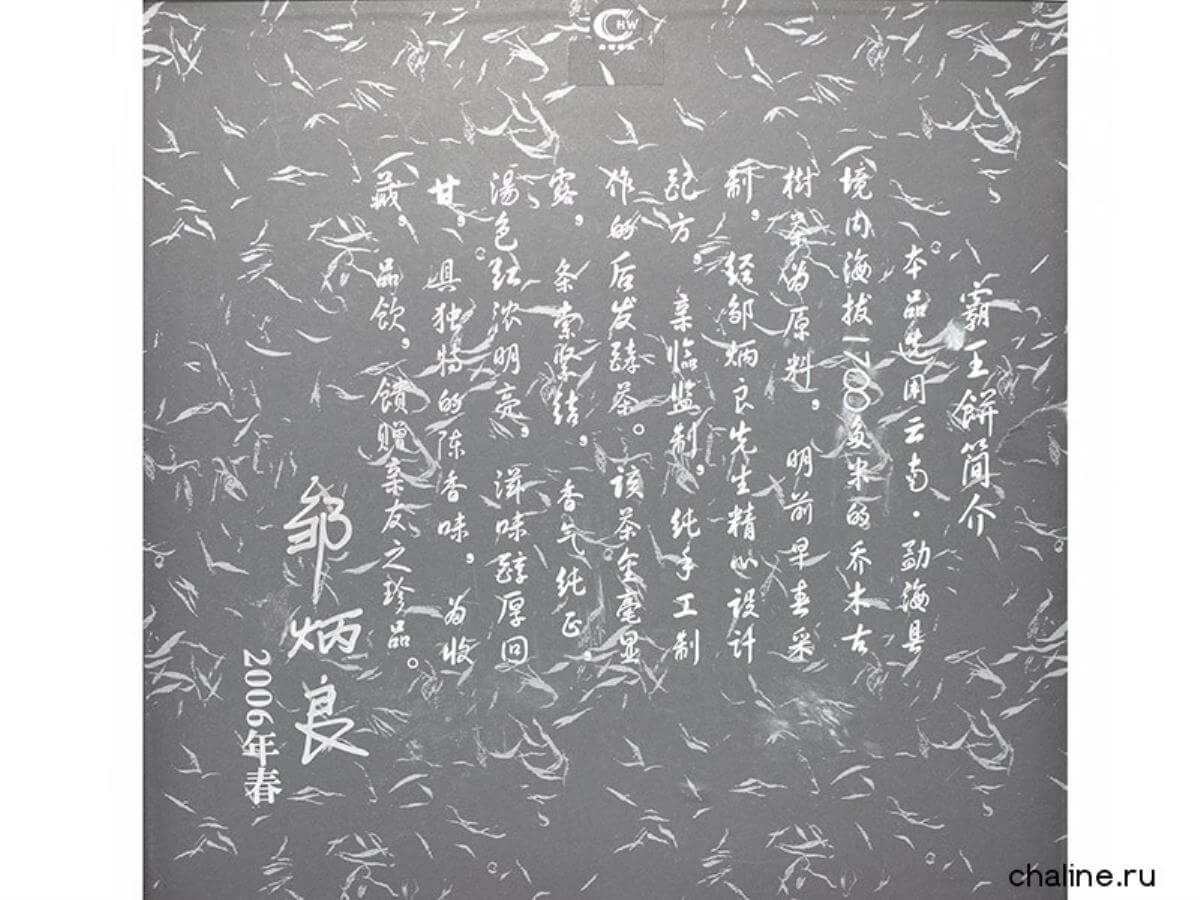 霸王餅简介
本品选用云南·勐海县
境内海拔1700多米的乔木古
樹茶为原料，明前早春采
制，经邹炳良先生精心设计
配方，亲临监制，纯手工制
作的后发酵茶。该茶金毫显
露，条索紧结，香气纯正。
湯色红浓明亮，滋味醇厚回
甘，具独特的陈香味，为收
藏，品饮，馈赠亲友之珍品。
邹炳良
2006年春
CHW
chaline.ru